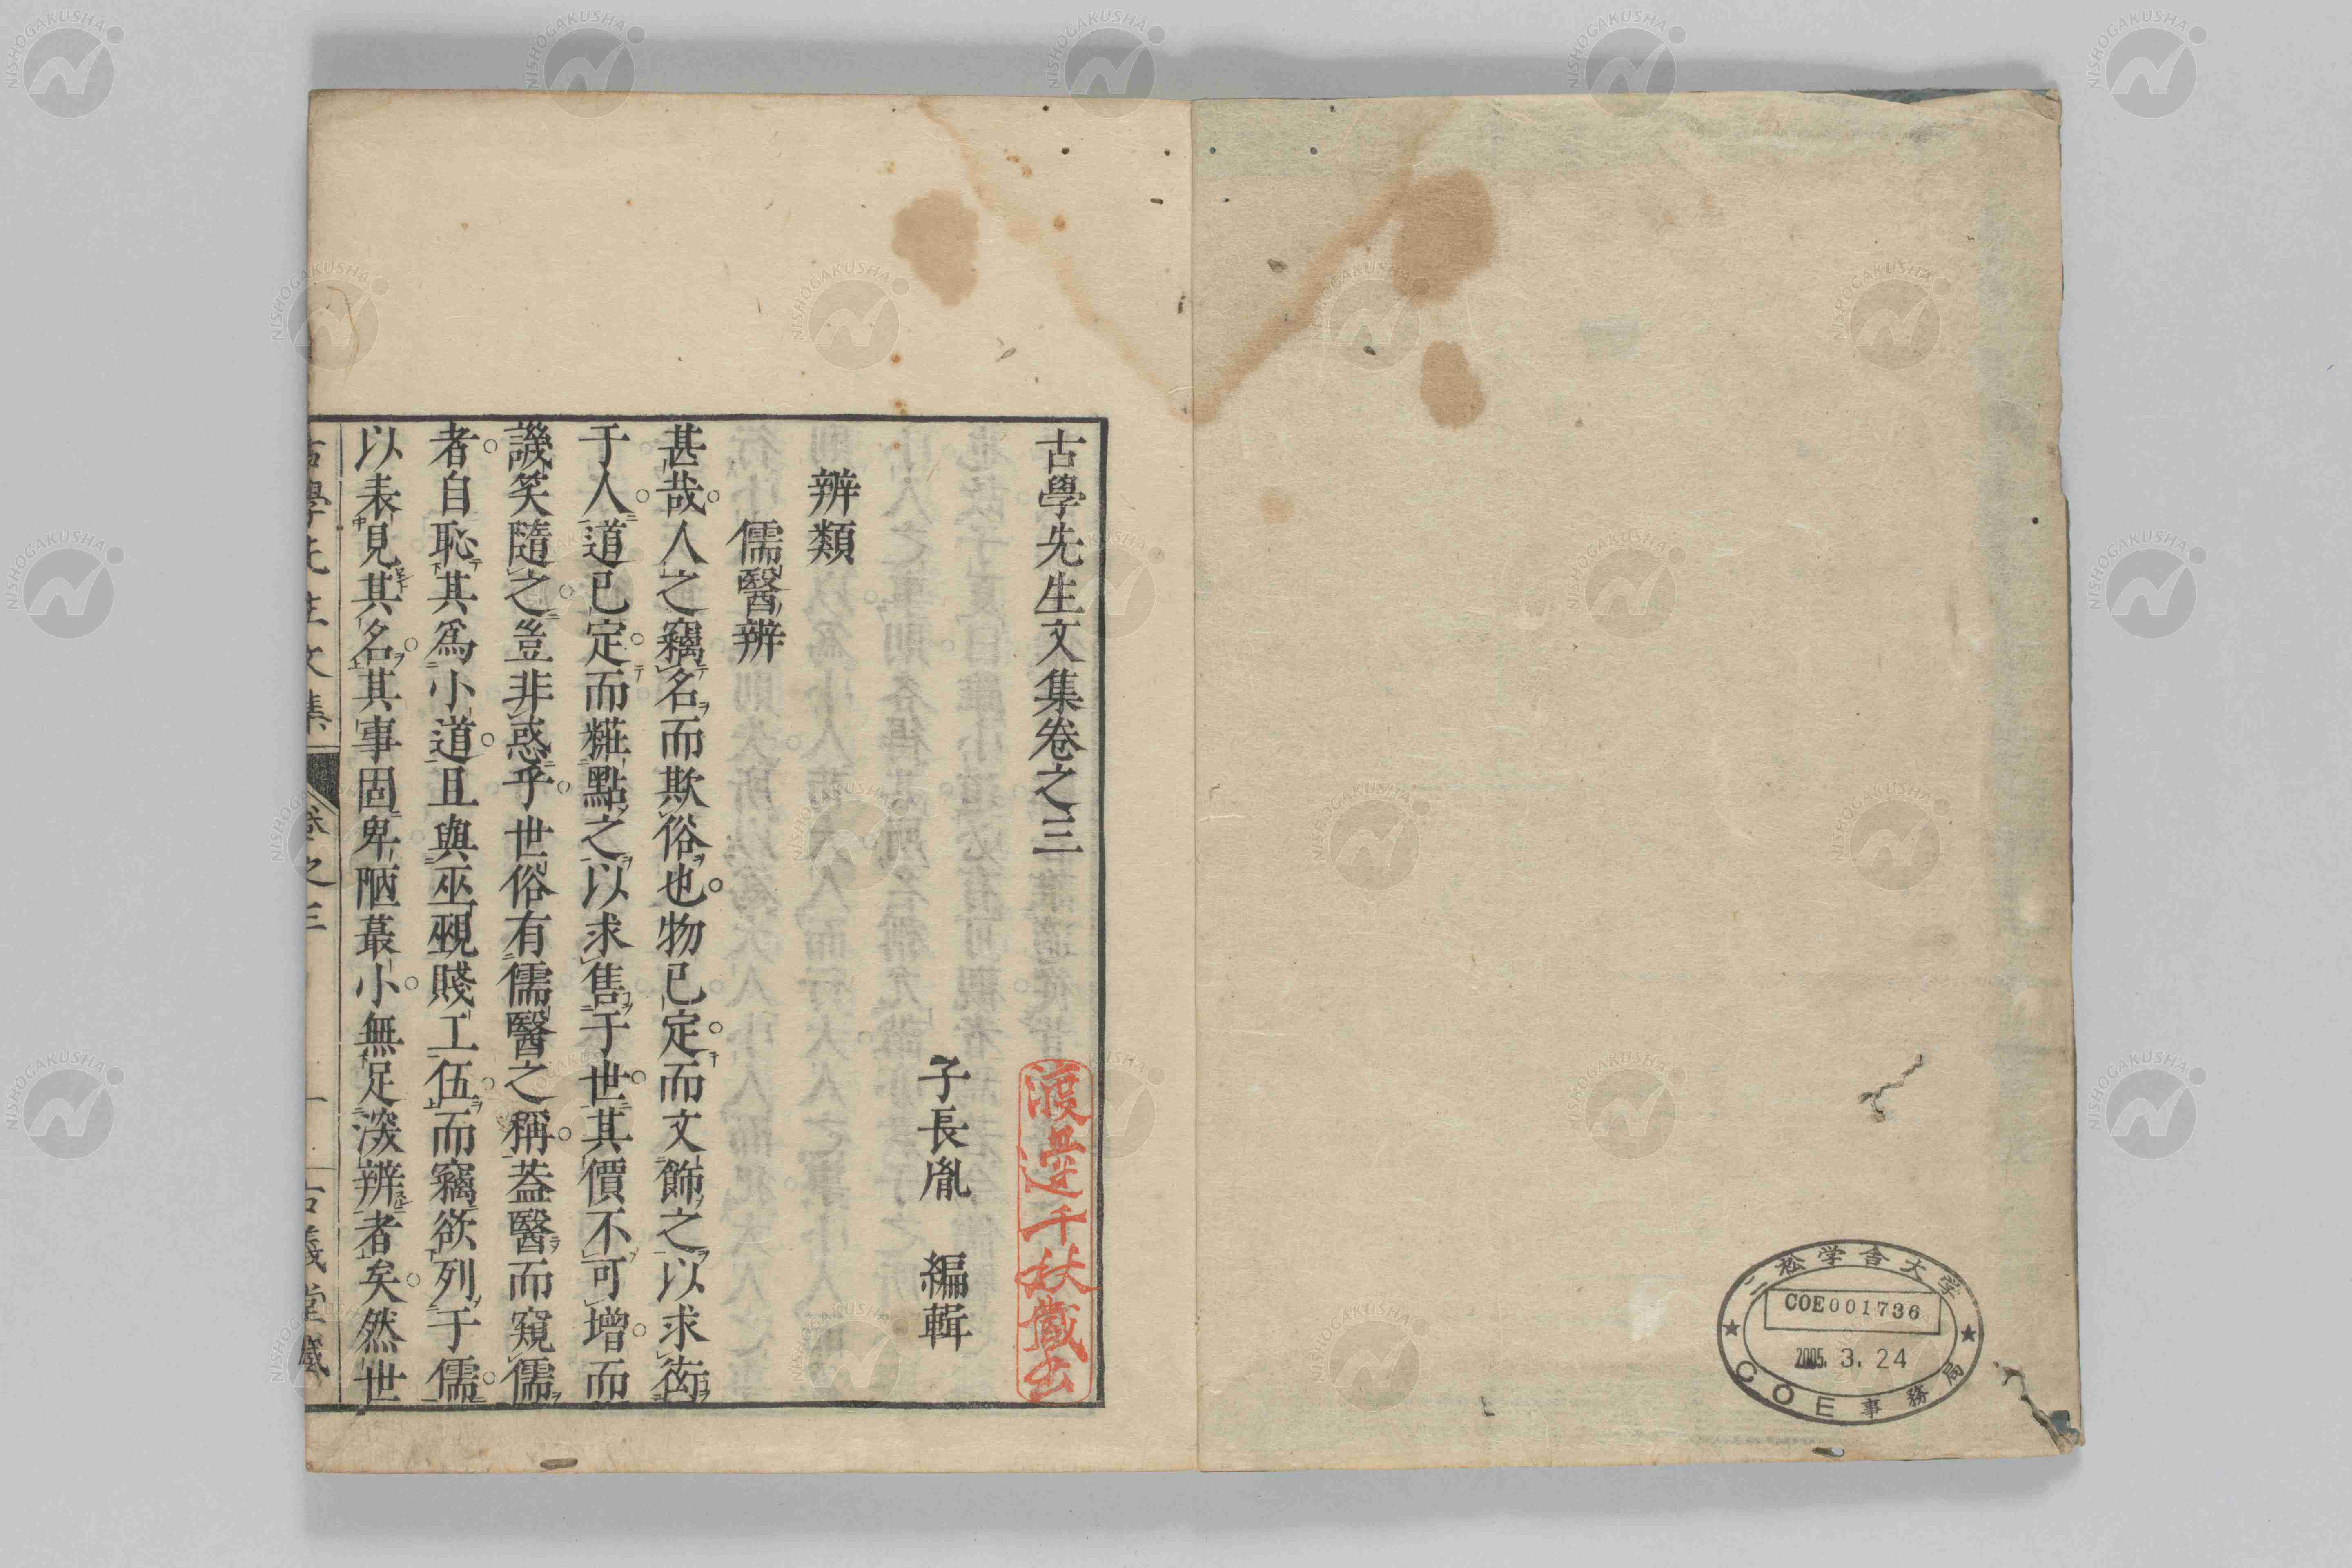 古學先生文集卷之三
渡邊千秋藏書
子長胤　編輯
辨類
儒醫辨
甚哉人之竊名而欺俗也物已定而文飾之以求衒
于人道已定而糚點之以求售于世其價不可增而
譏笑隨之豈非惑乎世俗有儒醫之稱葢醫而窺儒
者自恥其爲小道且與巫覡賤工伍而竊欲列于儒
以表見其名其事固卑陋蕞小無足深辨者矣然世
古學先生文集　卷之三　一　古義堂藏
二松学舎大学
COE001736
2005. 3. 24
COE事務局
NISHOGAKUSHA